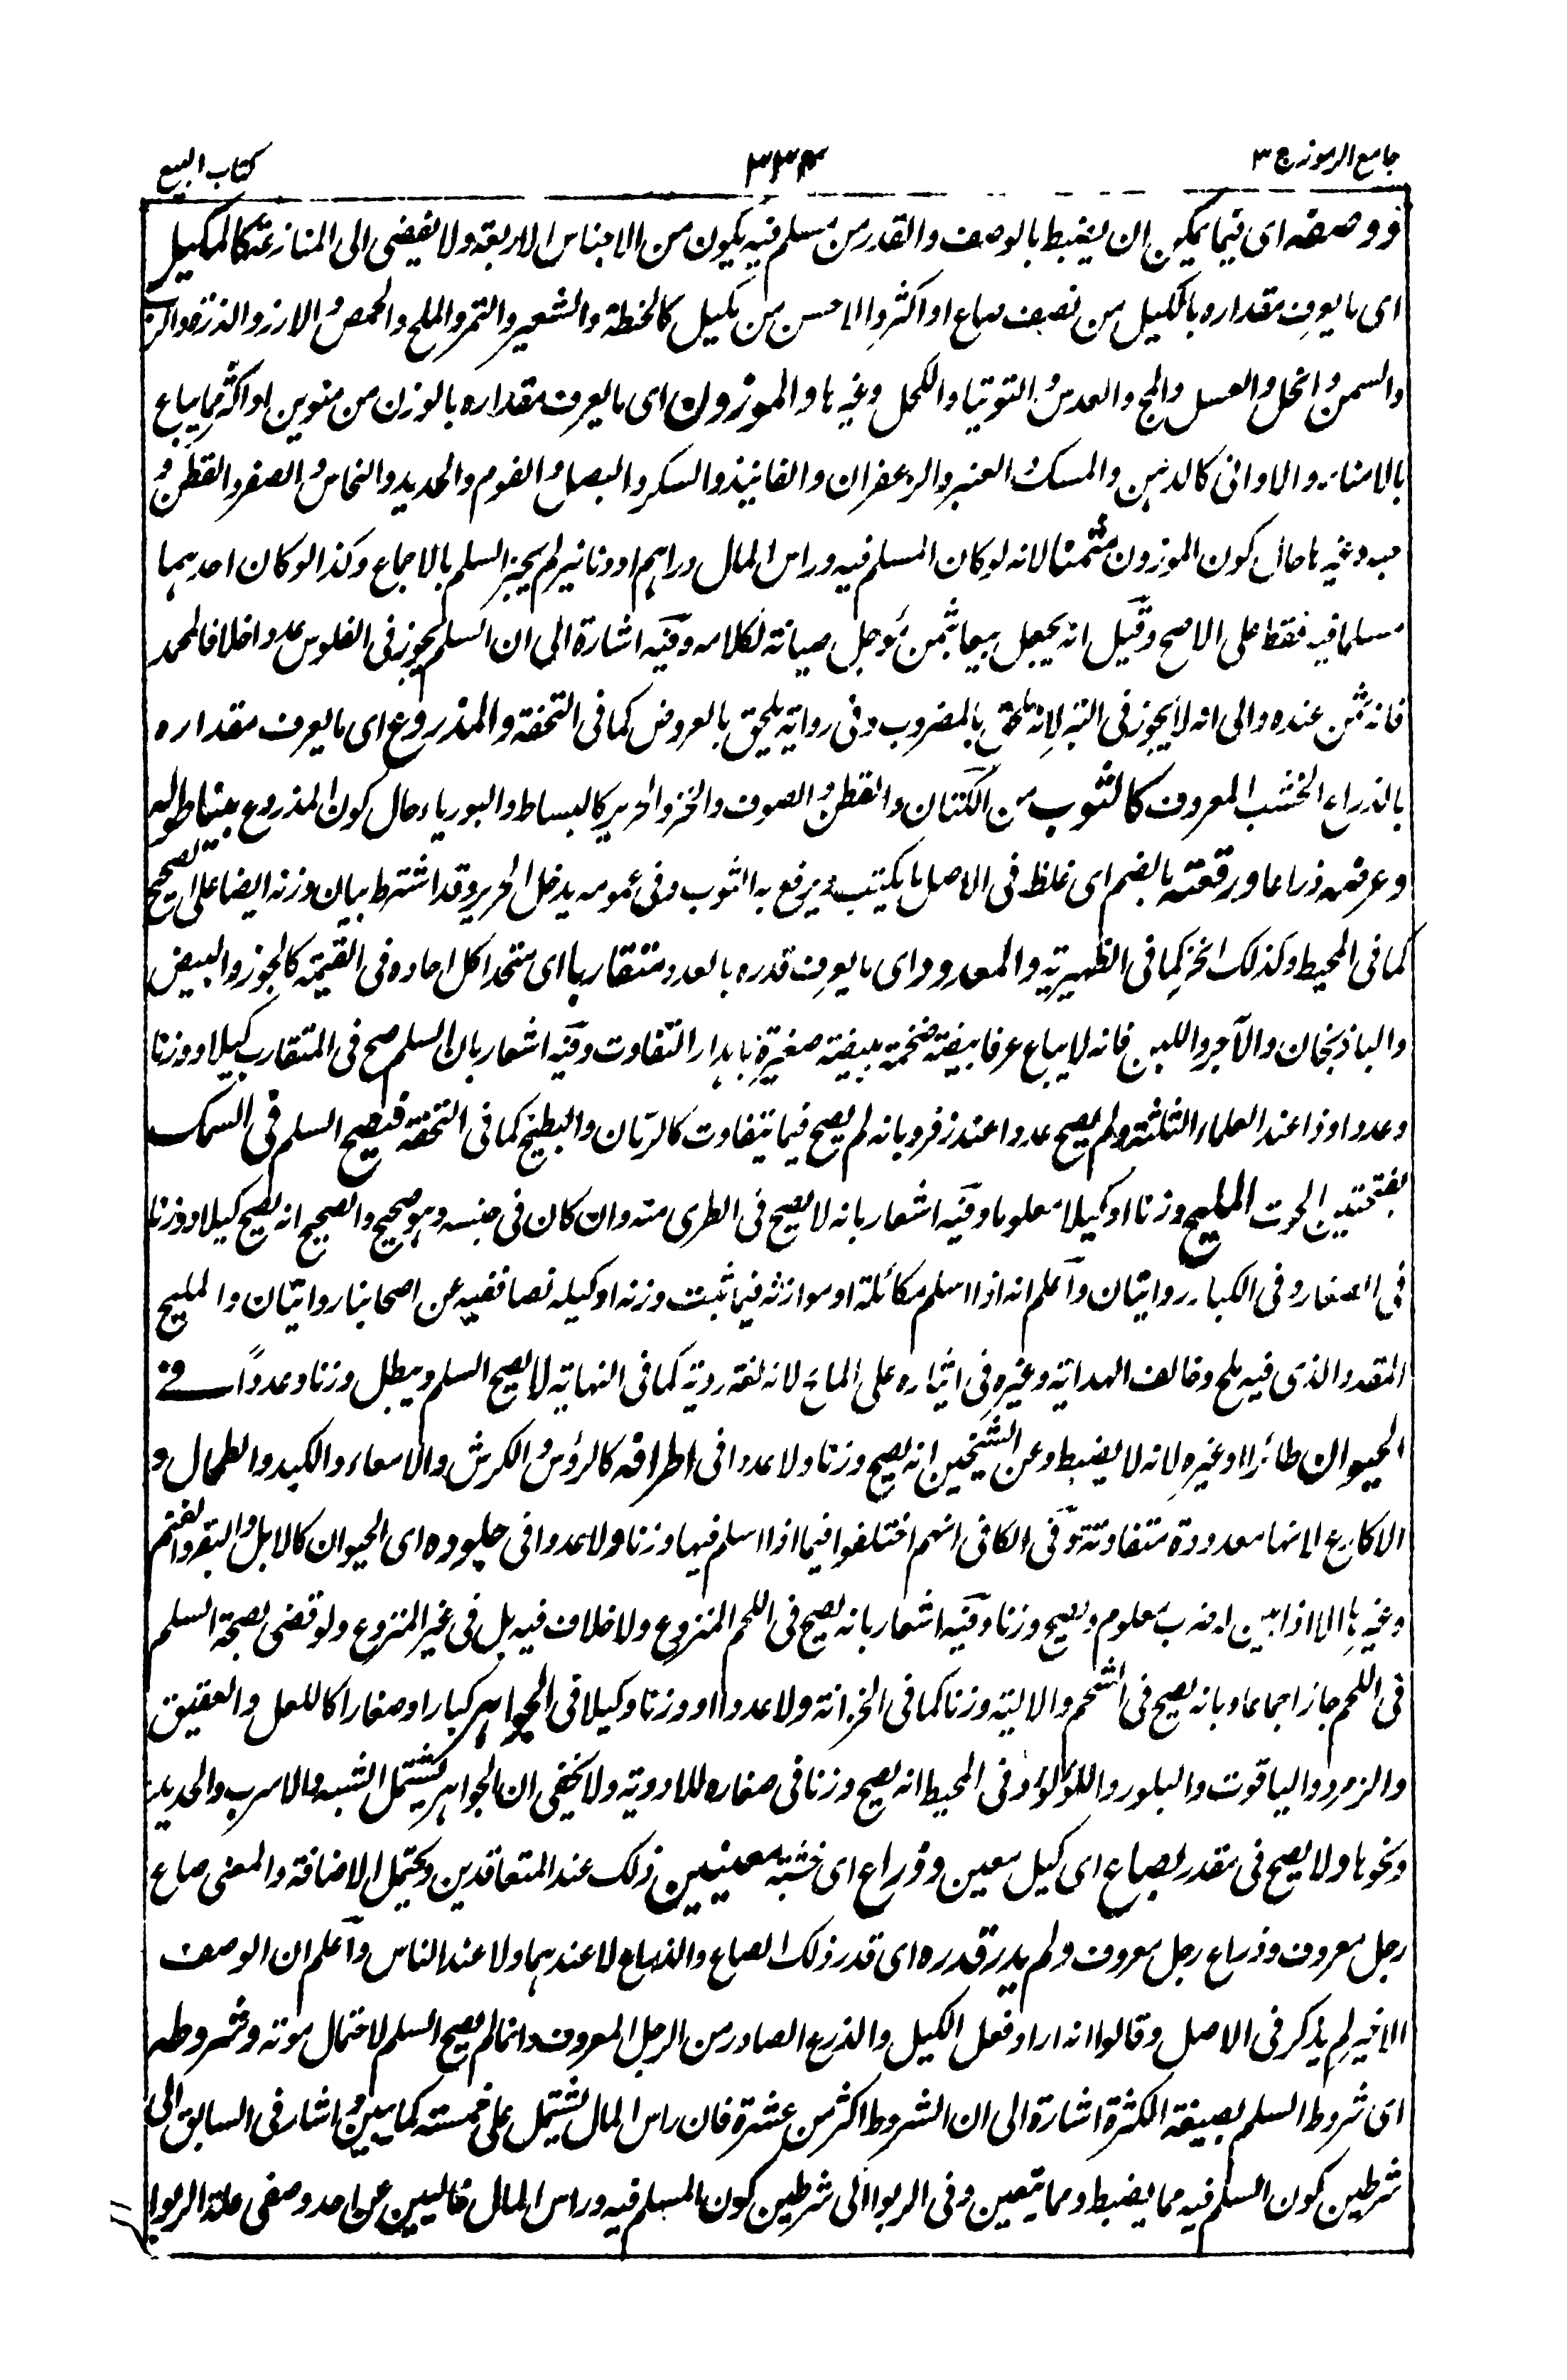 جامع الرموز ج ٣
٣٣٤
كتاب البيع
و وصفه اى فيما يمكن ان يضبط بالوصف والقدر من مسلم فيه يكون من الاجناس الاربعة ولا يفضى الى المنازعة كالمكيل
اى ما يعرف مقداره بالكيل من نصف صاع او اكثر والاحسن من مكيل كالحنطة والشعير والتمر والملح والحمص والارز والذرة
والسمن والخل والعسل والمج والعدس والتوتيا والكحل وغيرها والموزون اى ما يعرف مقداره بالوزن من منوين او اكثر مما يباع
بالامناء والاوانى كالدهن والمسك والعنبر والزعفران والفانيذ والسكر والبصل والفوم والحديد والنحاس والصفر والقطن و
وغيرها حال كون الموزون مثمنا لانه لو كان المسلم فيه وراس المال دراهم او دنانير لم يجز السلم بالاجماع وكذا لو كان احدهما
مسلما فيه فقط على الاصح وقيل انه يجعل بيعا بثمن مؤجل صيانة لكلامه وفيه اشارة الى ان السلم يجوز فى الفلوس عددا خلافا لمحمد
فانه ثمن عنده والى انه لا يجوز فى التبر لانه ملحق بالمضروب وفى رواية يلحق بالعروض كما فى التحفة والمذروع اى ما يعرف مقداره
بالذراع الخشب المعروف كالثوب من الكتان والقطن والصوف والخز والحرير كالبساط والبورياء حال كون المذروع مبينا طوله
وعرضه ذراعا ورقعته بالضم اى غلظ فى الاصل ما يكتب ويرفع به الثوب وفى عمومه يدخل الحرير وقد اشترط بيان وزنه ايضا على الصحيح
كما فى المحيط وكذلك الخز كما فى الظهيرية والمعدود اى ما يعرف قدره بالعدد متقاربا اى متحدا كل احاده فى القيمة كالجوز والبيض
والباذنجان والآجر واللبن فانه لا يباع عرفا بيضة ضخمة ببيضة صغيرة باهدار التفاوت وفيه اشعار بان السلم صح فى المتقارب كيلا ووزنا
وعددا وذا عند العلماء الثلثة ولم يصح عددا عند زفر وبانه لم يصح فيما يتفاوت كالرمان والبطيخ كما فى التحفة فيصح السلم فى السمك
بفتحتين الحوت المليح وزنا او كيلا معلوما وفيه اشعار بانه لا يصح فى الطرى منه وان كان فى جنسه وهو صحيح والصحيح انه يصح كيلا ووزنا
فى الصغار وفى الكبار روايتان واعلم انه اذا اسلم مكائلة او موازنة فيما ثبت وزنه او كيله نصا ففيه عن اصحابنا روايتان والمليح
المقدد الذى فيه ملح وخالف الهداية وغيره فى ايثاره على المالح لانه لغة ردية كما فى النهاية لا يصح السلم ويبطل وزنا وعددا فى
الحيوان طائرا او غيره لانه لا يضبط وعن الشيخين انه يصح وزنا ولا عددا فى اطرافه كالرؤس والكرش والامعاء والكبد والطحال و
الاكارع لانها معدودة متفاوتة وفى الكافى انهم اختلفوا فيما اذا اسلم فيها وزنا ولا عددا فى جلوده اى الحيوان كالابل والبقر والغنم
وغيرها الا اذا بين له ضرب معلوم ويصح وزنا وفيه اشعار بانه يصح فى اللحم المنزوع ولا خلاف فيه بل فى غير المنزوع ولو قضى بصحة السلم
فى اللحم جاز اجماعا وبانه يصح فى الشحم والالية وزنا كما فى الخزانة ولا عددا او وزنا وكيلا فى الجواهر كبارا وصغارا كاللعل والعقيق
والزمرد والياقوت والبلور واللؤلؤ وفى المحيط انه يصح وزنا فى صغاره للادوية ولا يخفى ان الجواهر يشتمل الشبه والاسرب والحديد
ونحوها ولا يصح فى مقدر بصاع اى كيل معين وذراع اى خشبة معينين ذلك عند المتعاقدين ويحتمل الاضافة والمعنى صاع
رجل معروف وذراع رجل معروف ولم يدر قدره اى قدر ذلك الصاع والذراع لا عندهما ولا عند الناس واعلم ان الوصف
الاخير لم يذكر فى الاصل وقالوا انه اراد فعل الكيل والذرع الصادر من الرجل المعروف وانما لم يصح السلم لاحتمال موته وشروطه
اى شروط السلم بصيغة الكثرة اشارة الى ان الشروط اكثر من عشرة فان راس المال يشتمل على خمسة كما يبين واشار فى السابق الى
شرطين كون السلم فيه مما يضبط ومما يتعين وفى الربوا الى شرطين كون المسلم فيه وراس المال خاليين عن احد وصفى علة الربوا